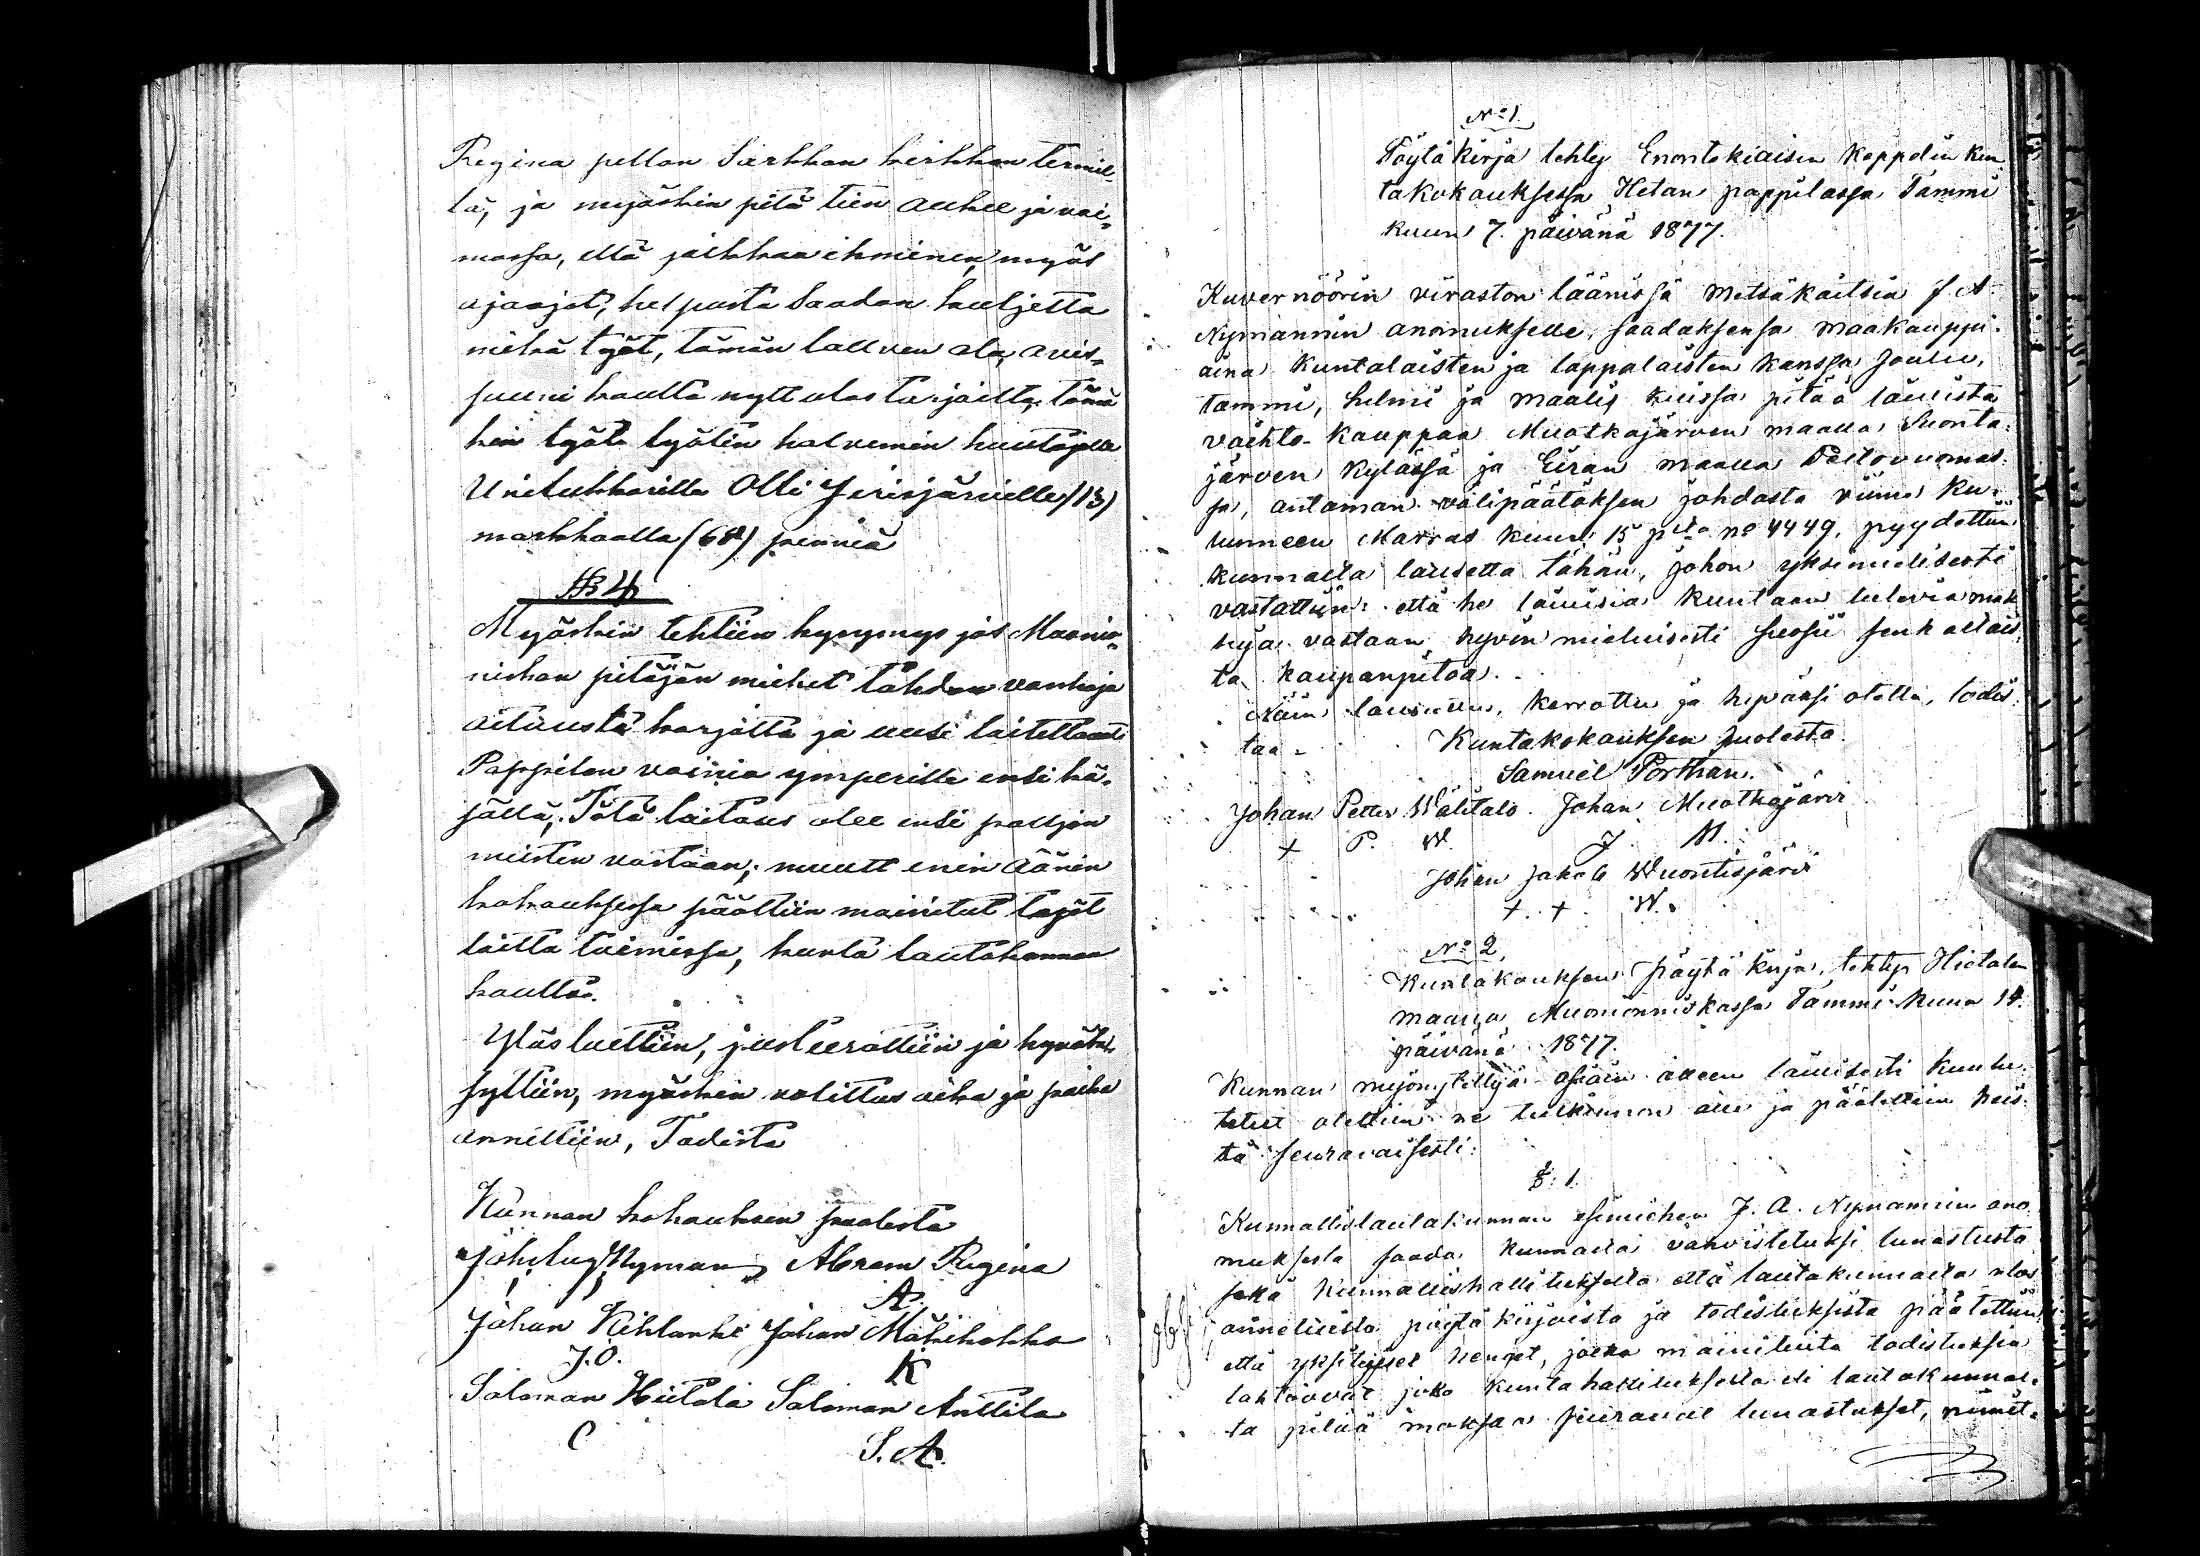 Regina pellon Sarkkan kirkkon termil-
lä, ja myöskin pitä tien aukee ja voi-
massa, että jalkkaa ihminen, myös
ajaajat, helposta Saadan kuljetta
nichä työt, tämän
suuni kautta nytt ulos tarjoilla, tämä
hin työte työtin halvemin huutajalle
Unilukkarille Olli Jerisjärvielle (13)
markkaalla (68) penniä
§ 4
Myöskin tehtiin kysymys jos Muonio-
niskan pitäjän miehet tähdon vanhaja
aituusta korjatta ja uusi laitettaa
Pappilan vainia ymperille ensi kä-
sällä, Tätä laitaus olee ensi paljon
meisten vastaan; muutt enin äänin
kokouksessa päättiin mainitut tyät
laitta toimissa, kunta lautakunnan
kautta.
Ylös luettiin, justeerattiin ja hyväk-
syttiin, myöskin valittus aika ja paika
annettiin, Todista
Kunnan kokouksen puolesta
Joh. Lug. Nyman Abram Regina
A.
Johan Kihlanki Johan Mäkikokko
J.O. K
Salomon Hietala Salomon Anttila
C S.A.
No 1.
Pöytäkirja tehty Enontekiäisen kappelin kun
takokouksessa Hetan pappilassa Tammi
kuun 7. päivänä 1877.
Kuvernöörin viraston läänissä metsäkäitsiä J. A.
Nymannin anomukselle, saadaksensa maakauppi-
aina Kuntalaisten ja lappalaisten kanssa Joulu,
tammi, helmi ja maalis kuissa pitää läuista
vaihto-kauppaa Muotkajärven maalla Suonta-
järven kylässä ja Eiran maalla Peltovuomas-
sa, antaman välipäätöksen johdosta viime ku-
lunneen Marras kuun 15 p:ltä no 4449, pyydettiin
kunnalta lausetta tähän, johon yksimielisesti
vastattiin: että he läuisia kuntaan tulevia mak
suja vastaan, hyvin mieluisesti suosii senkaltais-
ta kaupanpitoa.
Näin lausuttu, kerrottu ja hyväksi otettu, todis-
taa - Kuntakokouksen puolesta.
Samuel Porthan.
Johan Petter Wälitalo. Johan Muotkajärvi
+ P. W. J. M.
Johan Jakob Wuontisjärvi
+ + W.
No 2.
Kuntakouksen pöytä kirja, tehty Hietalan
maalla Muonionniskassa Tammi-kuun 14.
päivänä 1877.
Kunnan myönytettyjä asiain alleen läuisesti kuulu-
tetut otettiin ne tutkinnon alle ja päätettiin heis-
tä seuravaisesti:
§. 1.
Kunnallislautakunnan esimiehen J. A. Nymannin ano
muksesta saada kunnalta vahvistetuksi lunastusta
sekä kunnallishallituksesta että lautakunnalta ulos
annetuista pöytäkirjoista ja todistuksista päätettiin
että yksityiset henget, jotka mainituita todistuksia
tahtoovat joko kuntahallituksesta eli lautakunnal-
ta pitää maksaa seuravat lunastukset, nimit-